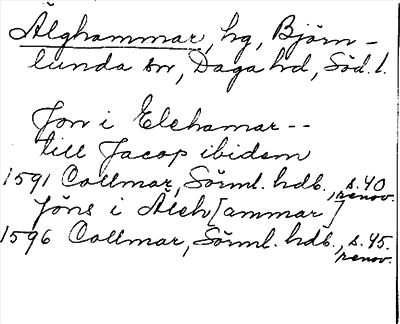 Älghammar, hg, Björn-
lunda sn, Daga hd, Söd. l.
Jon i Elchamar --
till Jacop ibidem
1591 Collmar, Sörml. hdb., s. 40
renov.
Jöns i Älch[ammar]
1596 Collmar, Sörml. hdb., s. 45.
renov.